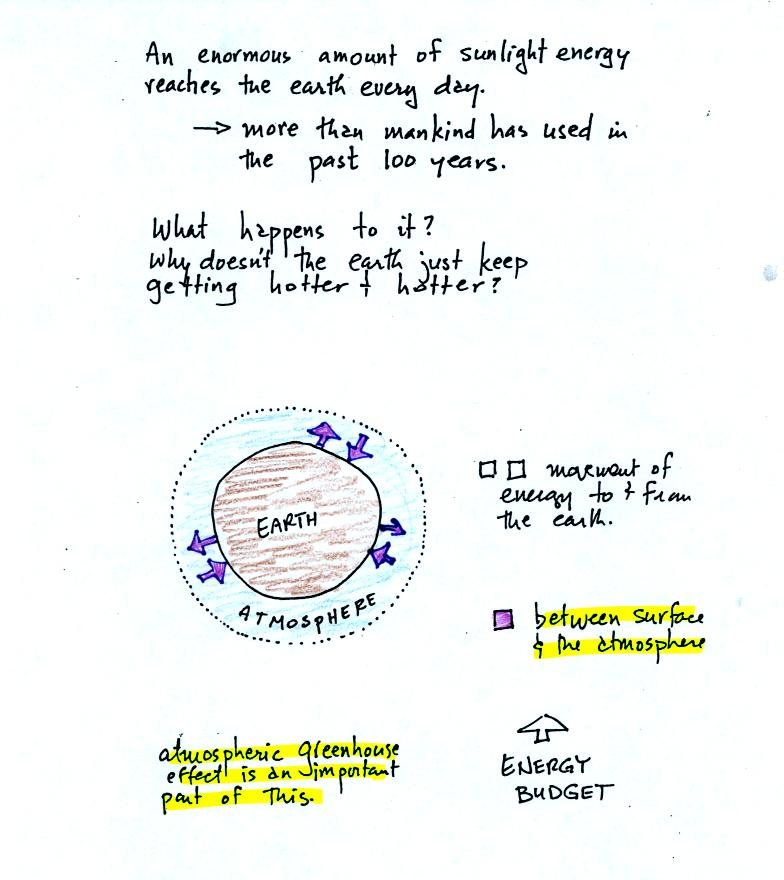 An enormous amount of sunlight energy
reaches the earth every day.
→ more than mankind has used in
the past 100 years.
What happens to it?
Why doesn't the earth just keep
getting hotter & hotter?
EARTH
ATMOSPHERE
of
energy to & from
the earth.
between surface
& the atmosphere
atmospheric greenhouse
effect is an important
part of this.
ENERGY
BUDGET